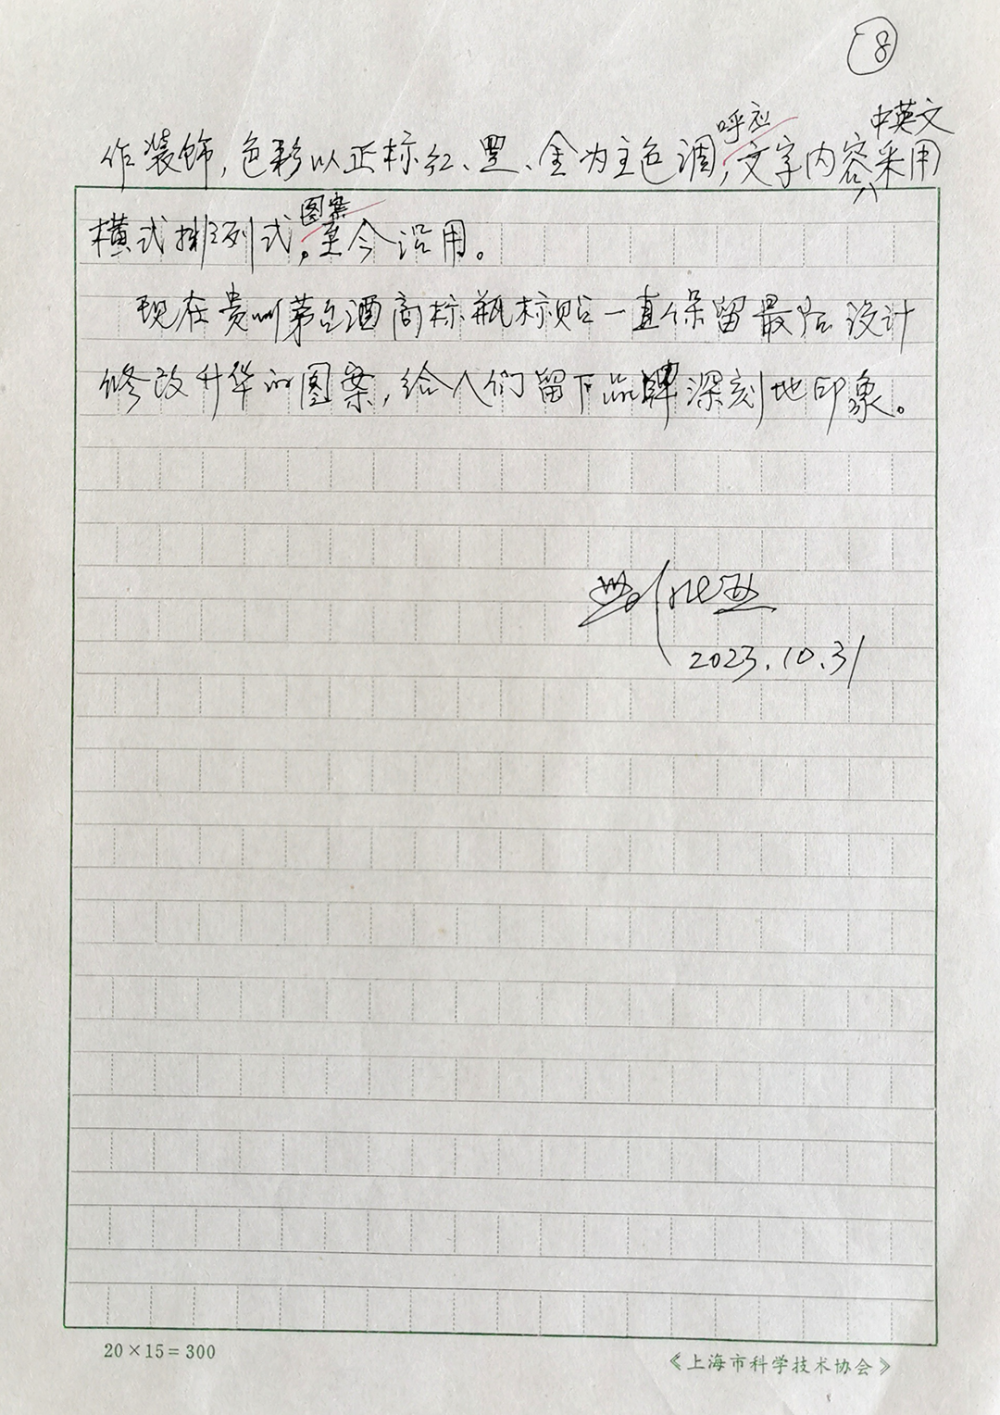 8
呼应 中英文
作装饰,色彩以正标红、黑、金为主色调,文字内容采用
图案
横式排列式。至今沿用。
现在贵州茅台酒商标瓶标贴一直保留最后设计
修改升华的图案,给人们留下品牌深刻地印象。
2023.10.31
20×15=300
《上海市科学技术协会》